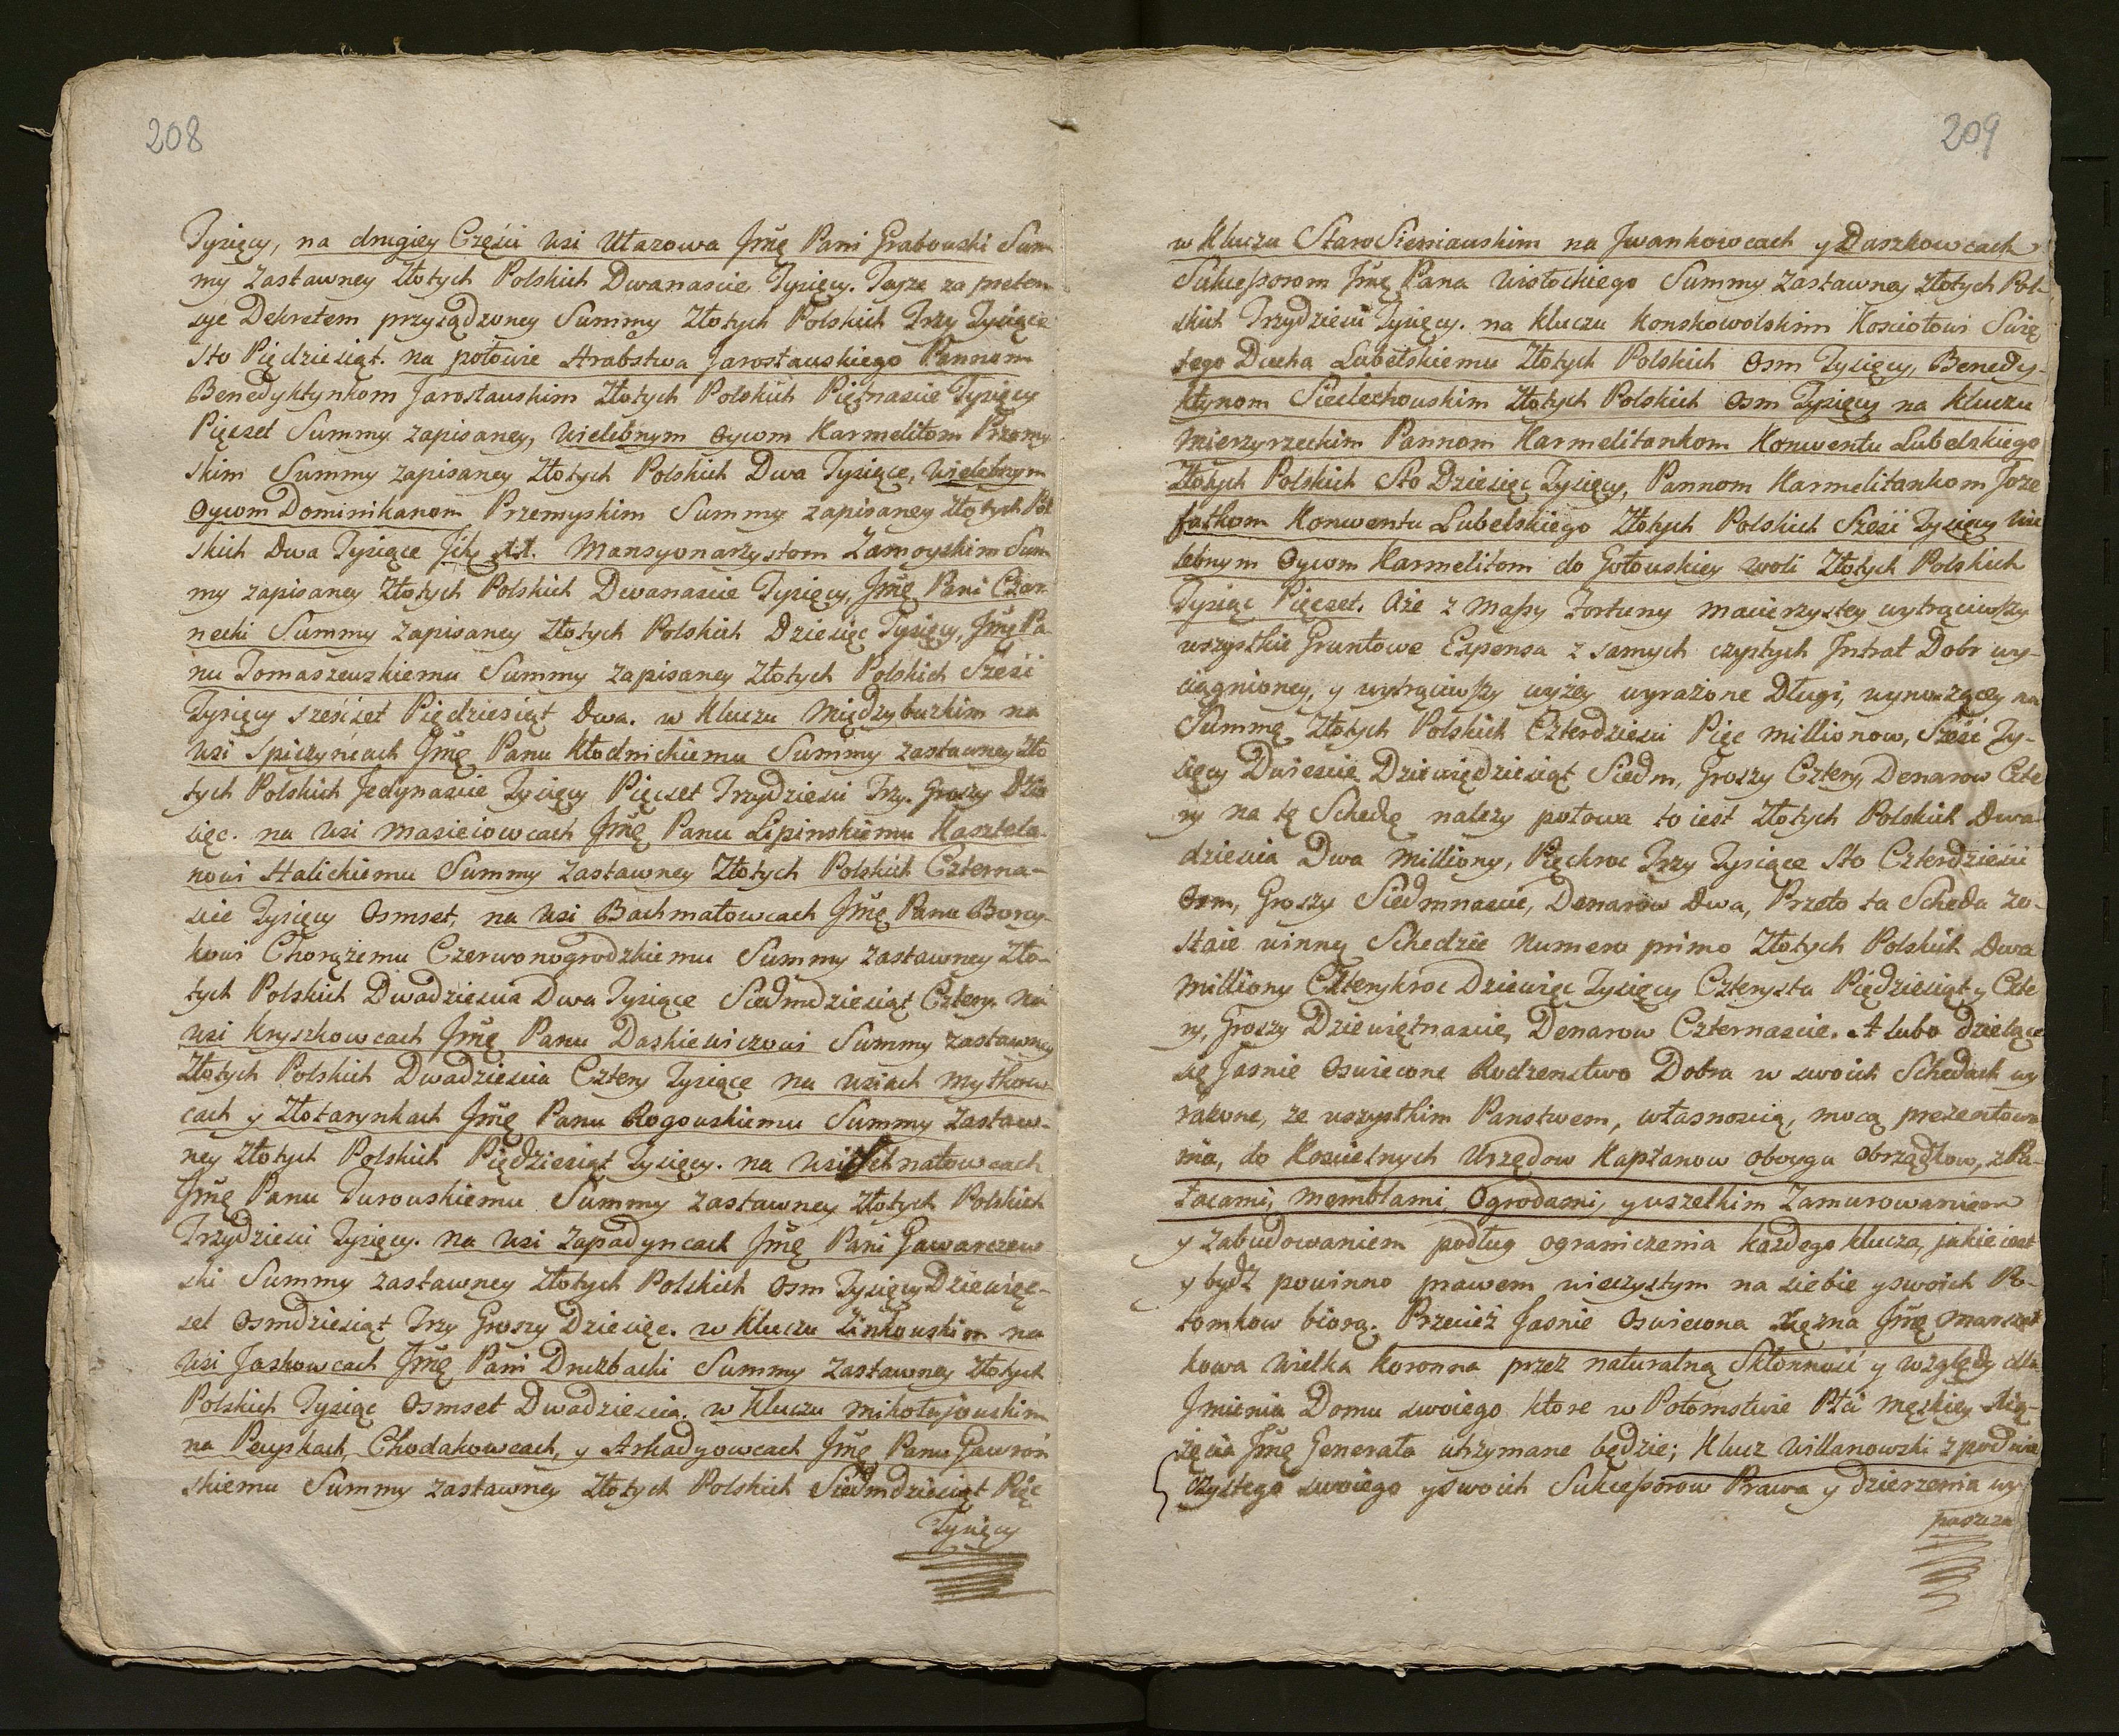 208
Tysięcy, na drugiey Części wsi Ułazowa Jmę Pani Grabowski Sum
my Zastawney Złotych Polskich Dwanaście Tysięcy. Tayze za preten
syę Dekretem przysądzoney Summy Złotych Polskich Trzy Tysiące
Sto Pięcdziesiąt. na połowie Hrabstwa Jarosławskiego Pannom
Benedyktynkom Jarosławskim Złotych Polskich Piętnascie Tysięcy
Pięcset Summy zapisaney, Wielebnym Oycom Karmelitom Przemy
skim Summy zapisaney Złotych Polskich Dwa Tysiące, Wielebnym
Oycom Dominikanom Przemyskim Summy zapisaney Złotych Pol
skich Dwa Tysiące Mansyonarzystom Zamoyskim Sum
my zapisaney Złotych Polskich Dwanascie Tysięcy, Jmę Pani Czar
necki Summy zapisaney Złotych Polskich Dziesięc Tysięcy, Jmę Pa
nu Tomaszewskiemu Summy zapisaney Złotych Polskich Sześć
Tysięcy sześćset Pięcdziesiąt Dwa. w Kluczu Międzyburkim na
Wsi Spiczyńcach Jmę Panu Kłodnickiemu Summy zastawney Zło
tych Polskich Jedynascie Tysięcy Pięcset Trzydziesci Trzy. Groszy Dzie
sięc. na Wsi Masiciowcach Jmę Panu Lipinskiemu Kasztela-
nowi Halickiemu Summy zastawney Złotych Polskich Czterna-
scie Tysięcy Osmset, na Wsi Bachmatowcach Jmę Panu Bory-
kowi Chorążemu Czerwonogrodzkiemu Summy zastawney Zło-
tych Polskich Dwadziescia Dwa Tysiące Siedmdziesiąt Cztery na
wsi Kryszkowcach Jmę Panu Daskiewiczowi Summy zastawney
Złotych Polskich Dwadziescia Cztery Tysiące na wsiach Mytkow-
cach y Złotarynkach Jmę Panu Rogowskiemu Summy zastaw-
ney Złotych Polskich Pięcdziesiąt Tysięcy. na Wsi
Jmę Panu Turowskiemu Summy zastawney Złotych Polskich
Trzydziesci Tysięcy. na Wsi Zapadyncach Jmę Pani Gawarczew
ski Summy zastawney Złotych Polskich Osm Tysięcy Dziewięc-
set Osmdziesiąt Trzy Groszy Dziewięc. w Kluczu Zinkowskim na
Wsi Jaskowcach Jmę Pani Druzbacki Summy zastawney Złotych
Polskich Tysiąc Osmset Dwadziescia. w Kluczu Mikołajowskim
na Pcuskach, Chodakowcach, y Arkadyowcach Jmę Panu Gawroń
skiemu Summy zastawney Złotych Polskich Siedmdziesiąt Pięc
Tysięcy
209
w Kluczu Staro Sieniawskim na Jwankowcach y Daszkowcach
Sukcessorom Jmę Pana Wisłockiego Summy zastawney Złotych Pol-
skich Trzydziesci Tysięcy. na Kluczu Konskowolskim Kosciołowi Swię
tego Ducha Lubelskiemu Złotych Polskich Osm Tysięcy, Benedy-
ktynom Sieciechowskim Złotych Polskich Osm Tysięcy na Kluczu
Mierzyrzeckim Pannom Karmelitankom Konwentu Lubelskiego
Złotych Polskich Sto Dziesięc Tysięcy, Pannom Karmelitankom Joze
fatkom Konwentu Lubelskiego Złotych Polskich Sześć Tysięcy Wie
lebnym Oycom Karmelitom do Gołowskiey Woli Złotych Polskich
Tysiąc Pięcset. Aże z Massy Fortuny Macierzystey wytrąciwszy
wszystkie Gruntowe Expensa z samych czystych Jntrat Dobr wy-
ciągnioney, y wytrąciwszy wyżey wyrażone Długi, wynoszącey na
Summę Złotych Polskich Czterdziesci Pięc Millionow, Sześć Ty-
sięcy Dwiescie Dziewięcdziesiąt Siedm, Groszy Cztery, Denarow Czte
ry na tę Schedę nalezy połowa to iest Złotych Polskich Dwa-
dziescia Dwa Milliony, Pięckroc Trzy Tysiące Sto Czterdziesci
Osm, Groszy Siedmnascie, Denarow Dwa, Przeto ta Scheda zo-
staie winną Schedzie Numero primo Złotych Polskich Dwa
Milliony Czterykroc Dziewięc Tysięcy Czterysta Pięcdziesiąt y Czte
ry, Groszy Dziewiętnascie, Denarow Czternascie. A lubo dzielące
się Jasnie Oswiecone Rodzenstwo Dobra w swoich Schedach wy
rażone, ze wszystkim Panstwem, własnoscią, mocą prezentowa
nia, do Koscielnych Urzędow Kapłanow oboyga Obrządkow, z Pa-
łacami, Memblami, Ogrodami, y wszelkim Zamurowaniem
y zabudowaniem podług ograniczenia każdego klucza, jakie iest
y bydź powinno prawem wieczystym na siebie y swoich Po-
tomkow biorą. Przecież Jasnie Oswiecona Xiężna Jmę Marszał
kowa Wielka Koronna przez naturalną Skłonnosć y względy dla
Jmienia Domu swoiego ktore w Potomstwie Płci męskiey Xią-
żęcia Jmę Generała utrzymane będzie; Klucz Willanowski z pod wie
czystego swoiego y swoich Sukcessorow Prawa y dzierzenia wy
puszcza